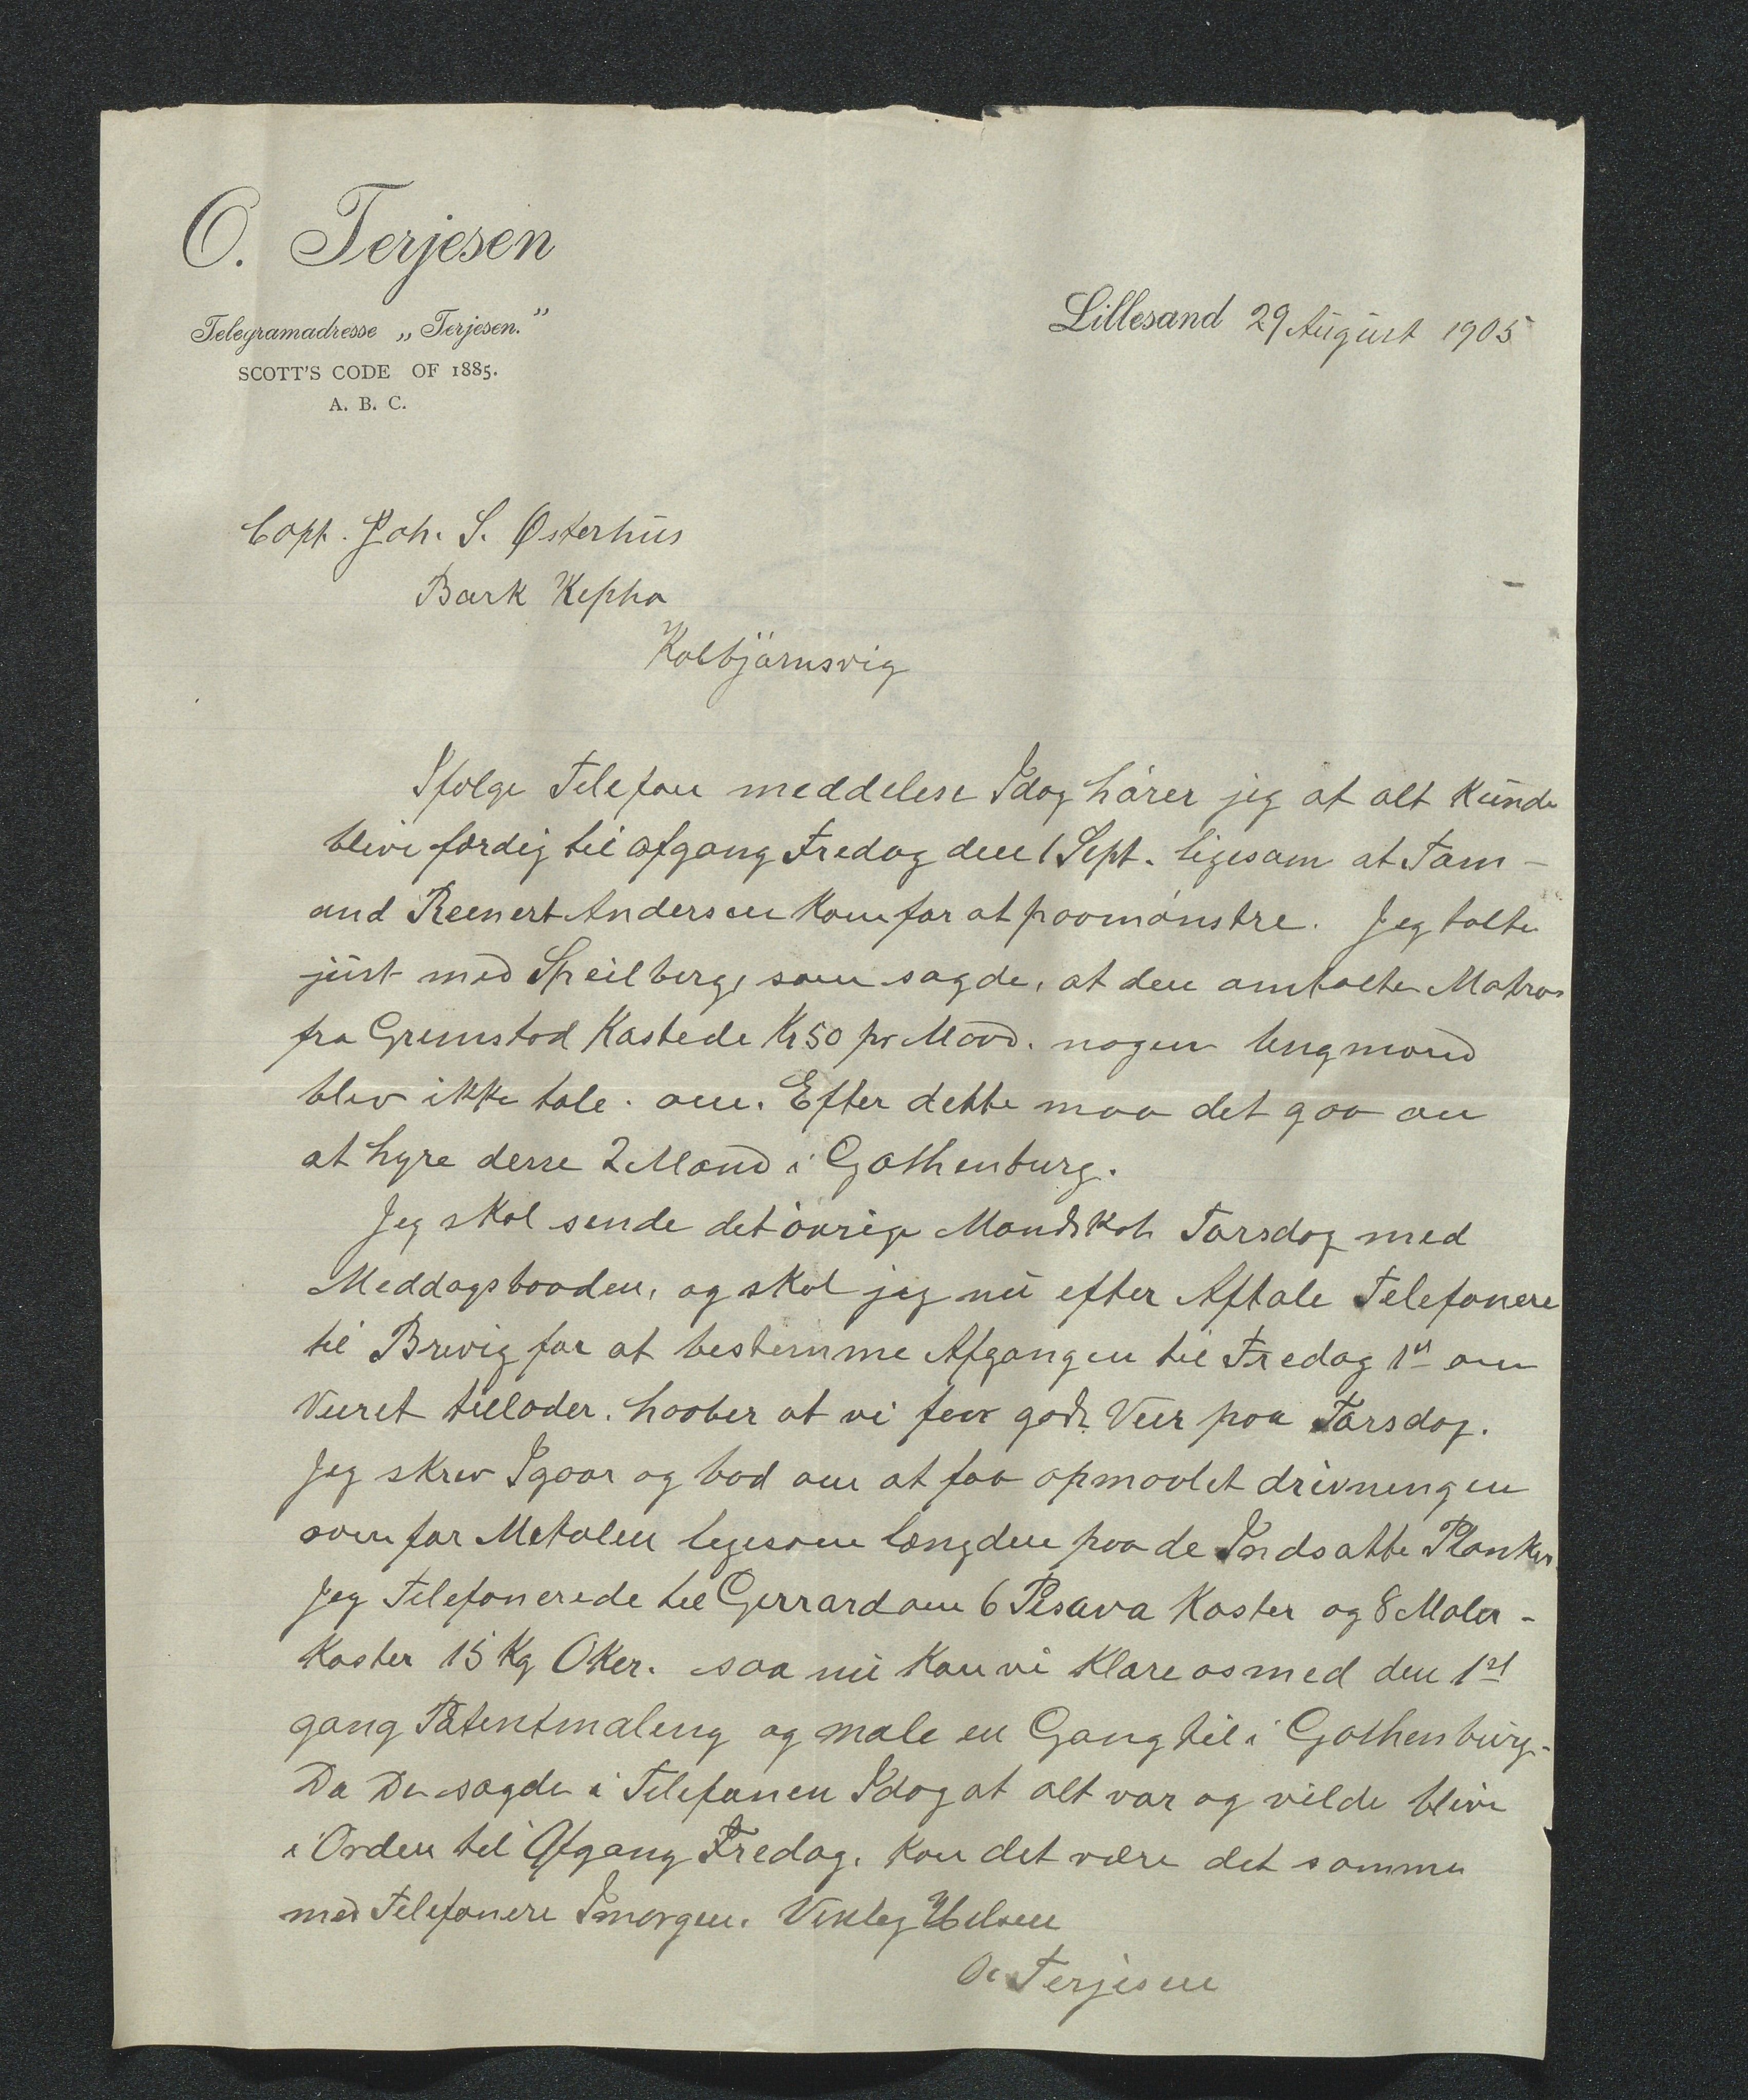 O. Terjesen
Telegramadresse „Terjesen."
SCOTT'S CODE OF 1885.
A. B. C.
Lillesand 29 August 1905
Capt. Joh. S. Østerhus
Bark Kepha
Kolbjörnsvig
Ifølge Telefon meddelese Idag hører jeg at alt kunde
blive færdig til afgang Fredag den 1 Sept. ligesom at Tøm-
and Reenert Andersen kom for at paamönstre. Jeg talte
just med Speilberg, som sagde, at den omtalte Matros
fra Grimstad kostede Kr 50 pr Maand. nogen Ungmand
blev ikke tale. om. Efter dette maa det gaa an
at hyre desse 2 Mand i Gothenburg.
Jeg skal sende det övrige Mandskab Torsdag med
Meddagsbaaden, og skal jeg nu efter Aftale Telefonere
til Brevig for at bestemme Afgangen til Fredag 1st om
Veiret tillader. haaber at vi faar godt Veir paa Torsdag.
Jeg skrev Igaar og bad om at faa opmaalet drivningen
over for Metalen ligesom længden paa de Indsatte Planker
Jeg Telefonerede til Gerrard om 6 Pisava Koster og 8 Maler-
koster 15 Kg Oker. saa nu kan vi klare os med den 1st
gang Patentmaling og male en Gang til i Gothenburg.
Da De sagde i Telefonen Idag at alt var og vilde blive
i Orden til Afgang Fredag. kan det være det samme
med Telefonere Imorgen. Venlig Hilsen
O. Terjesen